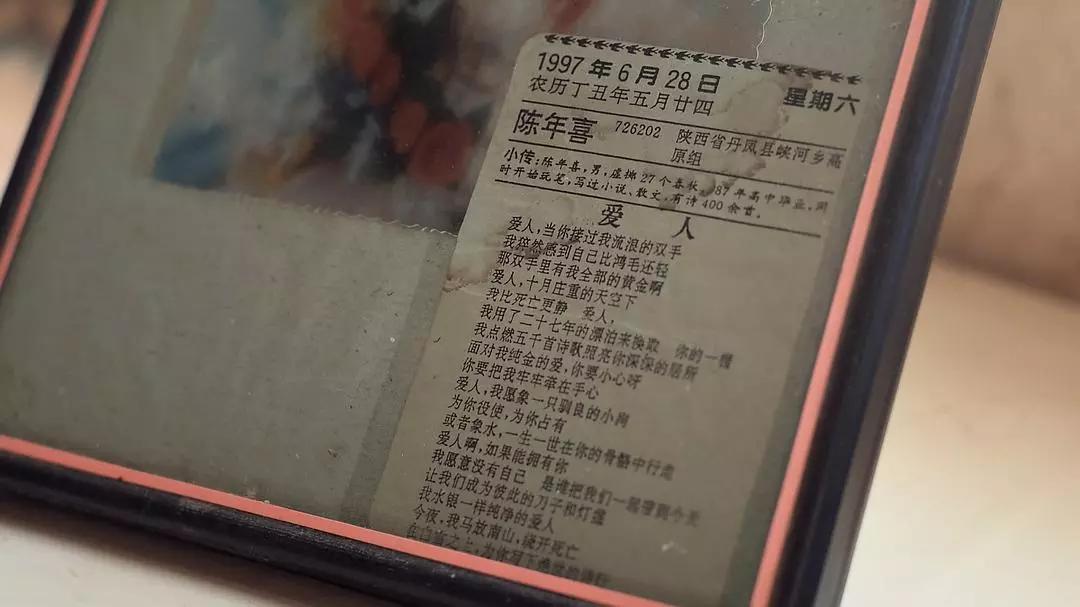 1997年6月28日 星期六
农历丁丑年五月廿四
陈年喜 726202 陕西省丹凤县峡河乡高
原组
小传:陈年喜,男,虚掷27个春秋,87年高中毕业,同
时开始玩笔,写过小说、散文,有诗400余首。
爱人
爱人,当你接过我流浪的双手
我猝然感到自己比鸿毛还轻
那双手里有我全部的黄金啊
爱人,十月庄重的天空下
我比死亡更静 爱人,
我用了二十七年的漂泊来换取 你的一
我点燃五千首诗歌照亮你深深的居所
面对我纯金的爱,你要小心呀
你要把我牢牢牵在手心
爱人,我愿象一只驯良的小狗
为你役使,为你占有
或者象水,一生一世在你的骨骼中行走
爱人啊,如果能拥有你
我愿意没有自己 是谁把我们一起带到今天
让我们成为彼此的刀子和灯盏
我水银一样纯净的爱人
今夜,我马放南山,绕开死亡
在白